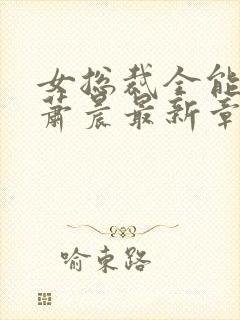 女总裁全能
萧晨最新章
喻东路